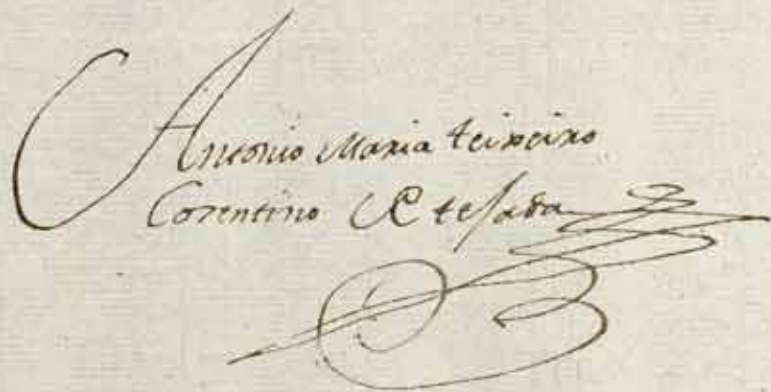 Antonio Maria teixeiro
Corentino de tejada